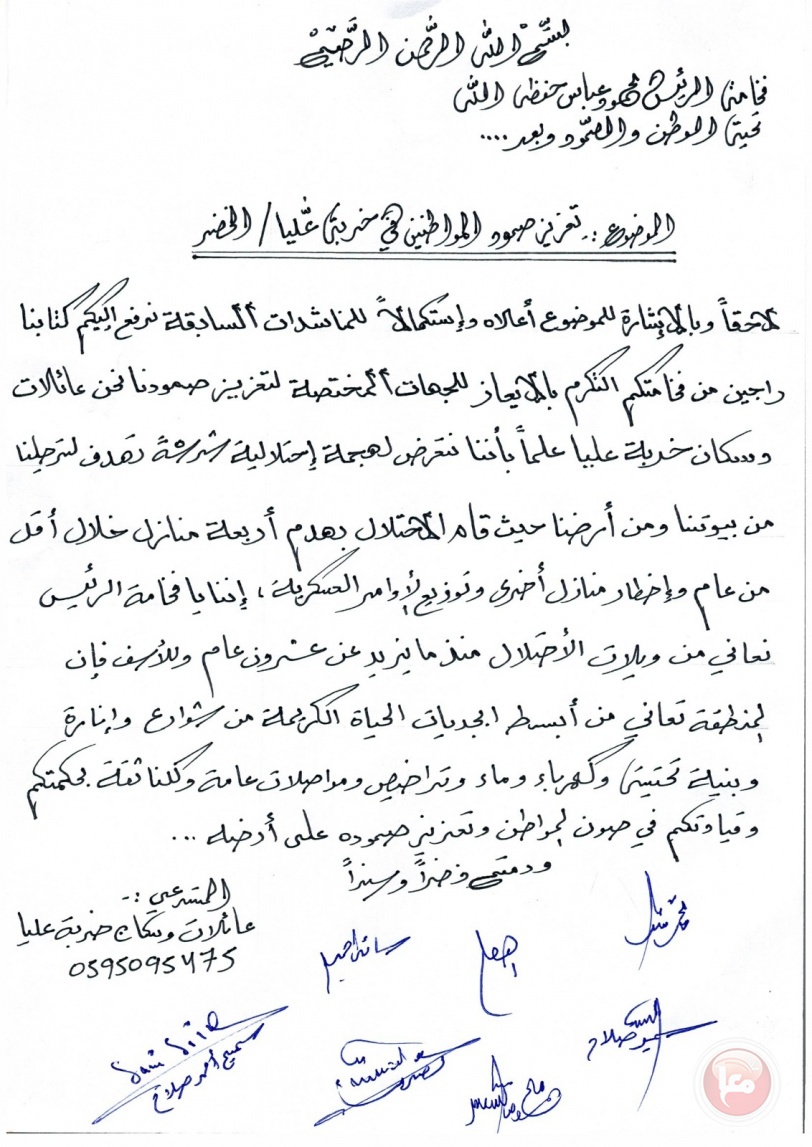 بسم الله الرحمن الرحيم
فخامة الرئيس محمود عباس حفظه الله
تحية الوطن والصمود وبعد ....
الموضوع :. تعزيز صمود المواطنين في خربة عليا / الخضر
لاحقاً وبالإشارة للموضوع أعلاه وإستكمالاً للمناشدات السابقة نرفع إليكم كتابنا
راجين من فخامتكم التكرم بالإيعاز للجهات المختصة لتعزيز صمودنا نحن عائلات
وسكان خربة عليا علماً بأننا نتعرض لهجمة إحتلالية شرسةً تهدف لترحيلنا
من بيوتنا ومن أرضنا حيث قام الاحتلال بهدم أربعة منازل خلال أقل
من عام وإخطار منازل أخرى وتوزيع لأوامر العسكرية ، إننا يا فخامة الرئيس
نعاني من ويلات الأحتلال منذ ما يزيد عن عشرون عام وللأسف فإن
المنطقة تعاني من أبسط ابجديات الحياة الكريمة من شوارع وإنارة
وبنية تحتية وكهرباء وماء وتراخيص ومواصلات عامة وكلنا ثقة بحكمتكم
وقيادتكم في صون المواطن وتعزيز صموده على أرضه ...
ودمتم ذخراً وسنداً
المستدعي :-
عائلات وسكان خربة عليا
0595095475
سميح أحمد صلاح
معا